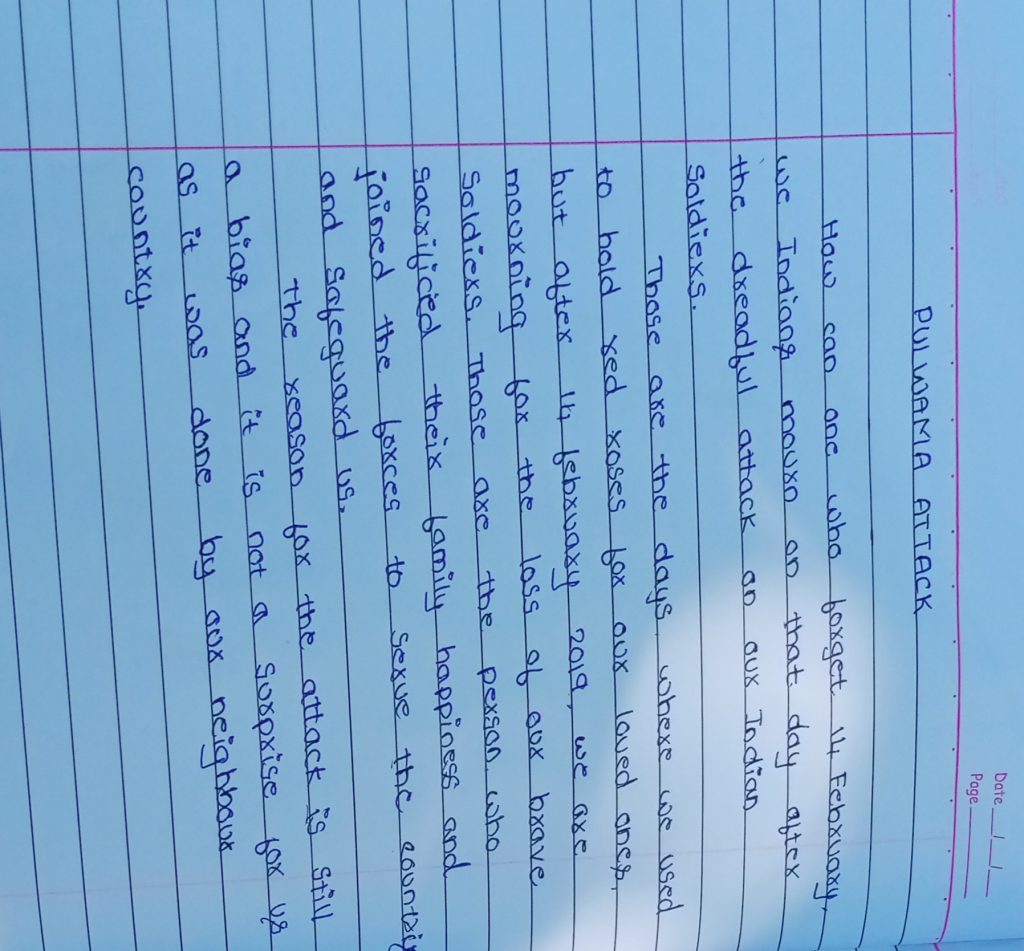 Date __/__/__
Page
PULWAMA ATTACK
How can one who forget 14 February,
we Indians mourn on that day after
the dreadful attack on our Indian
Soldiers.
Those are the days where we used
to hold red roses for our loved ones,
but after 14 february 2019, we are
mourning for the loss of our brave
Soldiers. Those are the person who
sacrificied their family happiness and
joined the forces to serve the country
and safeguard us.
The reason for the attack is still
a bias and it is not a surprise for us
as it was done by our neighbour
country.